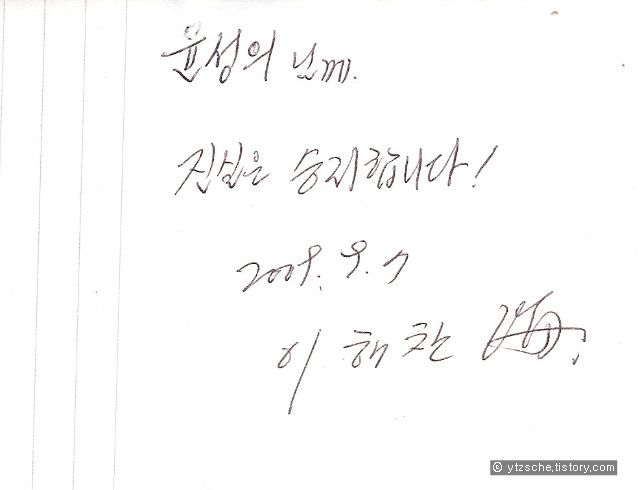 윤성의 님께.
진심은 승리합니다!
2009. 9. 7
이해찬
© ytzsche.tistory.com